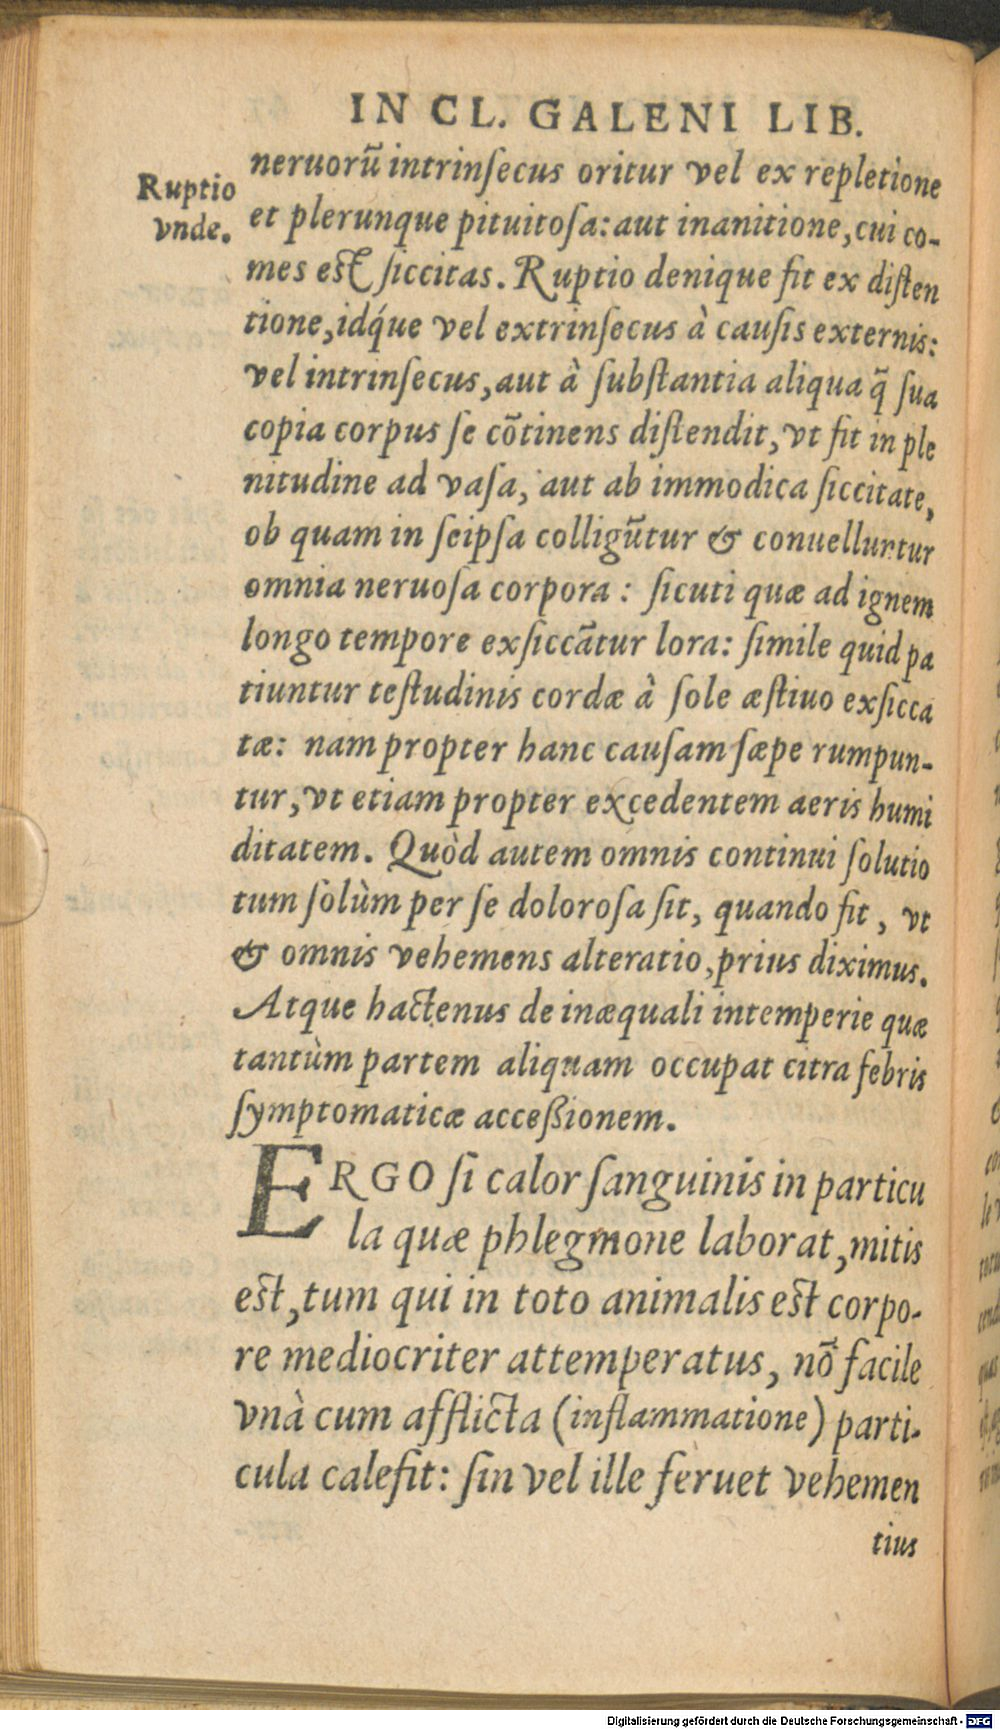 IN CL. GALENI LIB.
Ruptio
vnde.
neruorũ intrinſecus oritur vel ex repletione
et plerunque pituitoſa: aut inanitione, cui co-
mes eſt ſiccitas. Ruptio denique fit ex diſten
tione, idq́ue vel extrinſecus à cauſis externis:
vel intrinſecus, aut à ſubſtantia aliqua q̃ ſua
copia corpus ſe cõtinens diſtendit, vt fit in ple
nitudine ad vaſa, aut ab immodica ſiccitate,
ob quam in ſeipſa colligũtur & conuelluntur
omnia neruoſa corpora : ſicuti quæ ad ignem
longo tempore exſiccãtur lora: ſimile quid pa
tiuntur teſtudinis cordæ à ſole æſtiuo exſicca
tæ: nam propter hanc cauſam ſæpe rumpun-
tur, vt etiam propter excedentem aeris humi
ditatem. Quòd autem omnis continui ſolutio
tum ſolùm per ſe doloroſa ſit, quando fit , vt
& omnis vehemens alteratio, prius diximus.
Atque hactenus de inæquali intemperie quæ
tantùm partem aliquam occupat citra febris
ſymptomaticæ acceßionem.
ERGO ſi calor ſanguinis in particu
la quæ phlegmone laborat, mitis
eſt, tum qui in toto animalis eſt corpo-
re mediocriter attemperatus, nõ facile
vnà cum afflicta (inflammatione) parti-
cula calefit: ſin vel ille feruet vehemen
tius
Digitalisierung gefördert durch die Deutsche Forschungsgemeinschaft - DFG